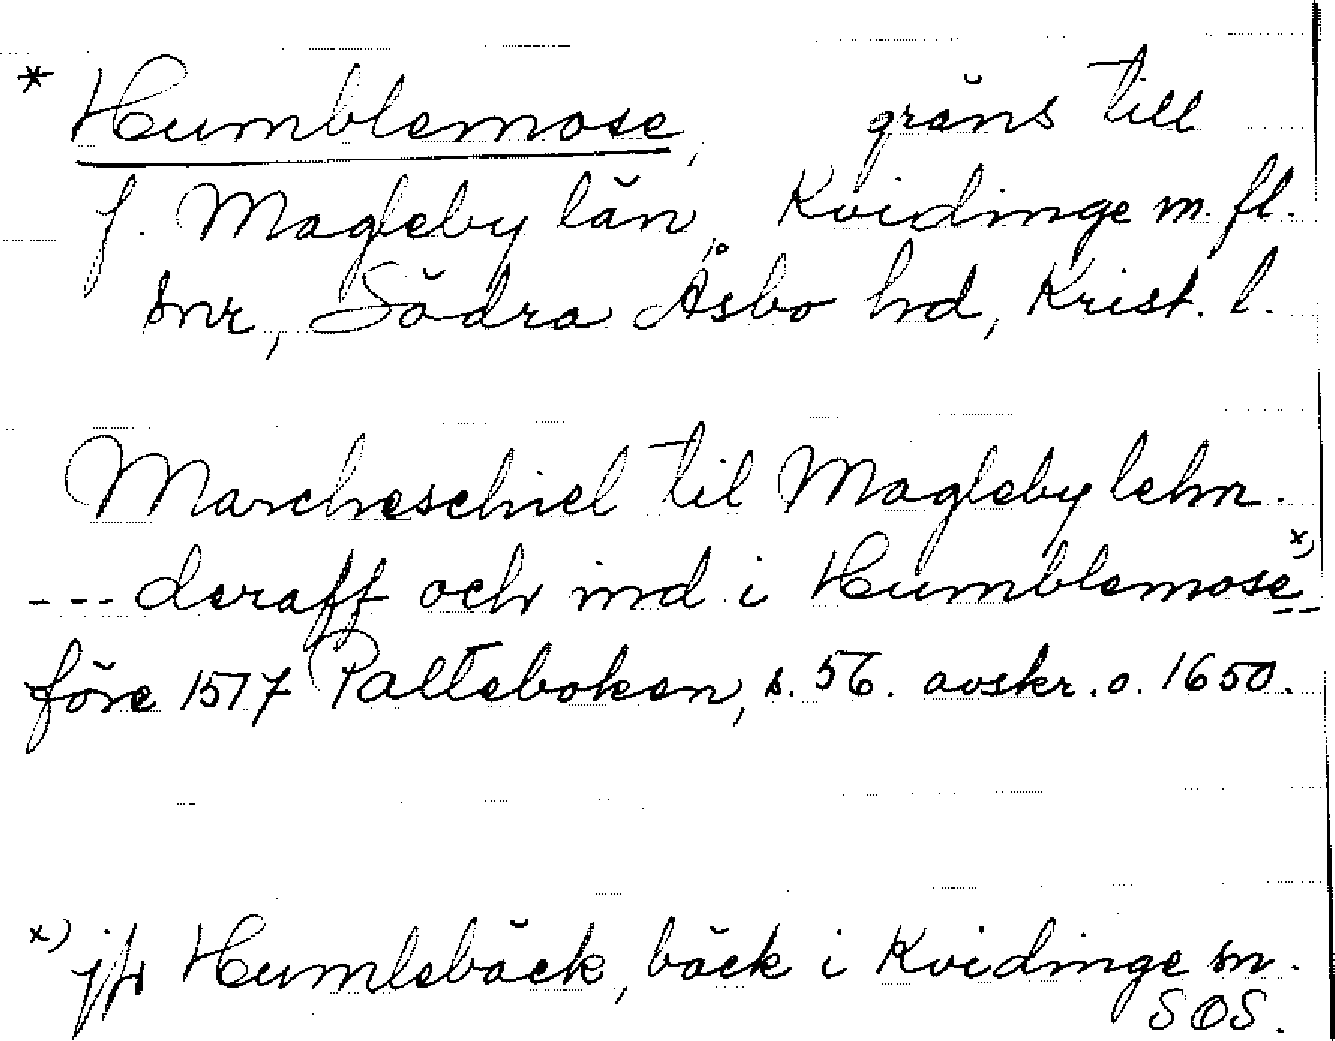 * Humblemose, gräns till
f. Magleby län, Kvidinge m. fl.
snr, Södra Åsbo hd, Krist. l.
Marcheschiel til Magleby lehn.
--- deraff och ind i Humblemose x) --
före 1517 Palteboken, s. 56. avskr. o. 1650.
x) jfr Humlebäck, bäck i Kvidinge sn.
SOS.